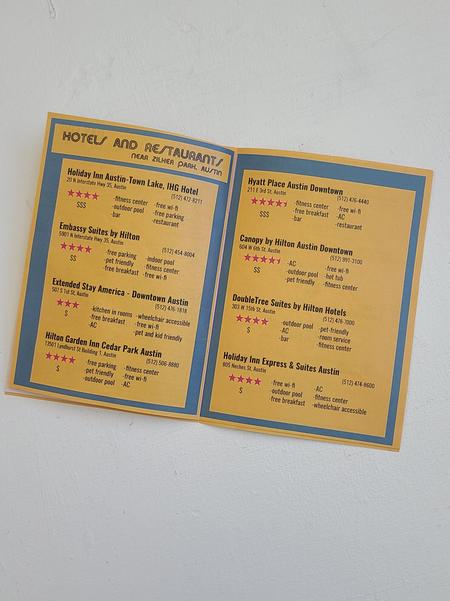 HOTELS AND RESTAURANTS
NEAR ZILKER PARK, AUSTIN
Holiday Inn Austin-Town Lake, IHG Hotel
20 N Interstate Hwy 35, Austin (512) 472-8211
★★★★ -fitness center -free wi-fi
$$$ -outdoor pool -free parking
-bar -restaurant
Embassy Suites by Hilton
5901 N Interstate Hwy 35, Austin (512) 454-8004
★★★★ -free parking -indoor pool
$$ -pet friendly -fitness center
-free breakfast -free wi-fi
Extended Stay America - Downtown Austin
507 S 1st St, Austin (512) 476-1818
★★★ -kitchen in rooms -wheelchair accessible
$ -free breakfast -free wi-fi
-AC -pet and kid friendly
Hilton Garden Inn Cedar Park Austin
Building 1, Austin (512) 506-8880
★★★★ -free parking -fitness center
$ -pet friendly -free wi-fi
-outdoor pool -AC
Hyatt Place Austin Downtown
211 E 3rd St, Austin (512) 476-4440
-fitness center -free wi-fi
$$$ -free breakfast -AC
-bar -restaurant
Canopy by Hilton Austin Downtown
604 W 6th St, Austin (512) 991-3100
-AC -free wi-fi
$$ -outdoor pool -hot tub
-pet friendly -fitness center
DoubleTree Suites by Hilton Hotels
303 W 15th St, Austin (512) 478-7000
★★★★ -outdoor pool -pet-friendly
$ -AC -room service
-bar -fitness center
Holiday Inn Express & Suites Austin
805 Neches St, Austin (512) 474-8600
★★★★ -free wi-fi -AC
$ -outdoor pool -fitness center
-free breakfast -wheelchair accessible